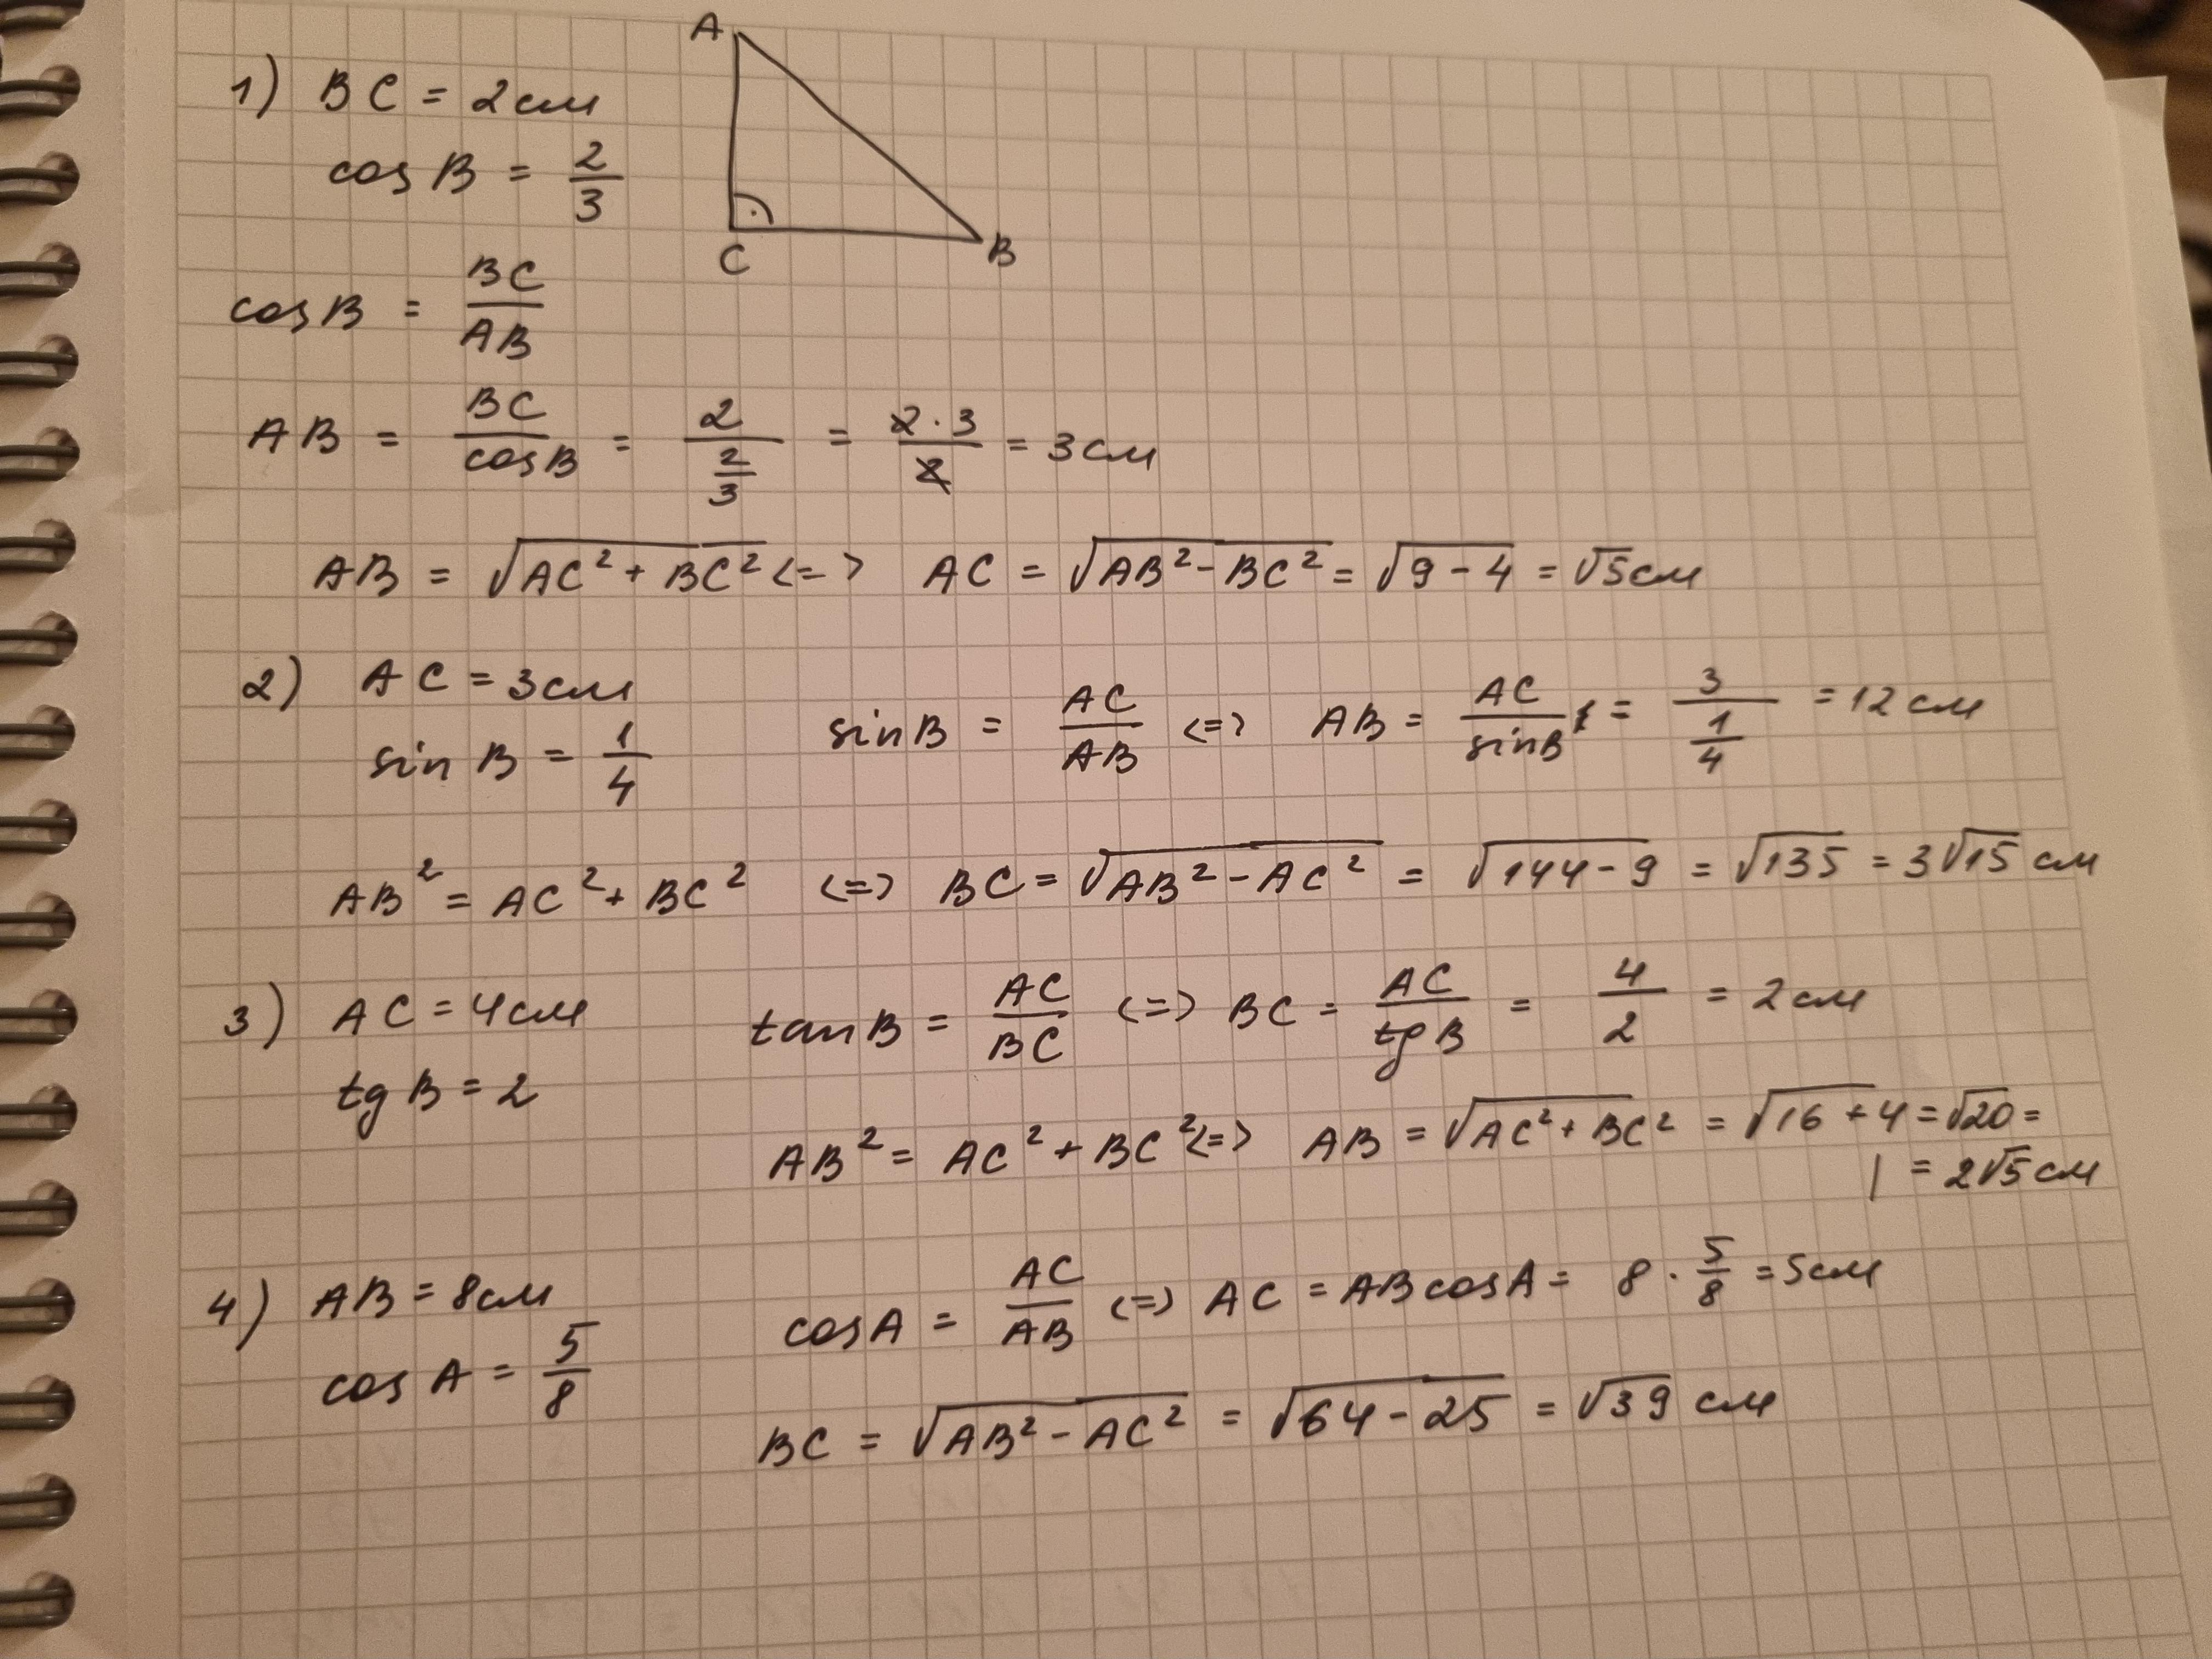 A
1) BC = 2см
cos B = 2/3
C B
cosB = BC/AB
AB = BC/cosB = 2/(2/3) = 2·3/2 = 3см
AB = √(AC² + BC²) <=> AC = √(AB² - BC²) = √(9 - 4) = √5см
2) AC = 3см
sin B = 1/4
sinB = AC/AB <=> AB = AC/sinB = 3/(1/4) = 12 см
AB² = AC² + BC² <=> BC = √(AB² - AC²) = √(144 - 9) = √135 = 3√15 см
3) AC = 4см
tg B = 2
tanB = AC/BC <=> BC = AC/tg B = 4/2 = 2см
AB² = AC² + BC² <=> AB = √(AC² + BC²) = √(16 + 4) = √20 =
| = 2√5 см
4) AB = 8см
cos A = 5/8
cosA = AC/AB <=> AC = ABcosA = 8 · 5/8 = 5см
BC = √(AB² - AC²) = √(64 - 25) = √39 см